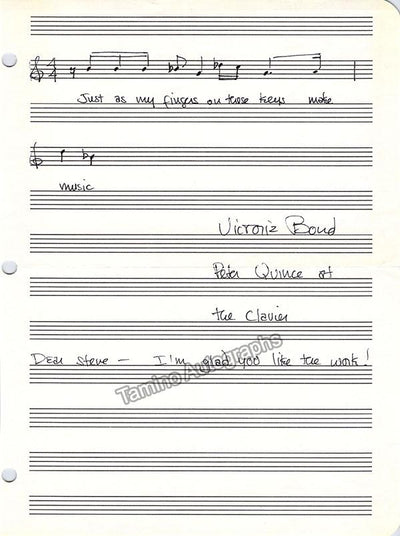 Just as my fingers on those keys make
music
Victoria Bond
Peter Quince at
the Clavier
Dear Steve — I'm glad you like the work!
Tamino Autographs